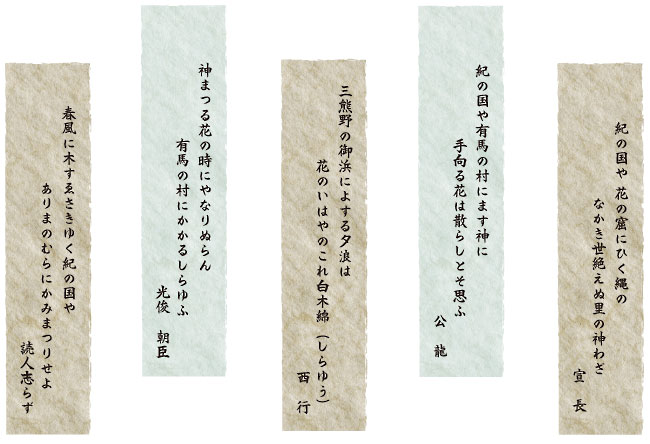 紀の国や 花の窟にひく縄の
なかき世絶えぬ里の神わざ
宣 長
紀の国や有馬の村にます神に
手向る花は散らしとそ思ふ
公 龍
三熊野の御浜によする夕浪は
花のいはやのこれ白木綿（しらゆう）
西 行
神まつる花の時にやなりぬらん
有馬の村にかかるしらゆふ
光俊 朝臣
春風に木すゑさきゆく紀の国や
ありまのむらにかみまつりせよ
読人志らず